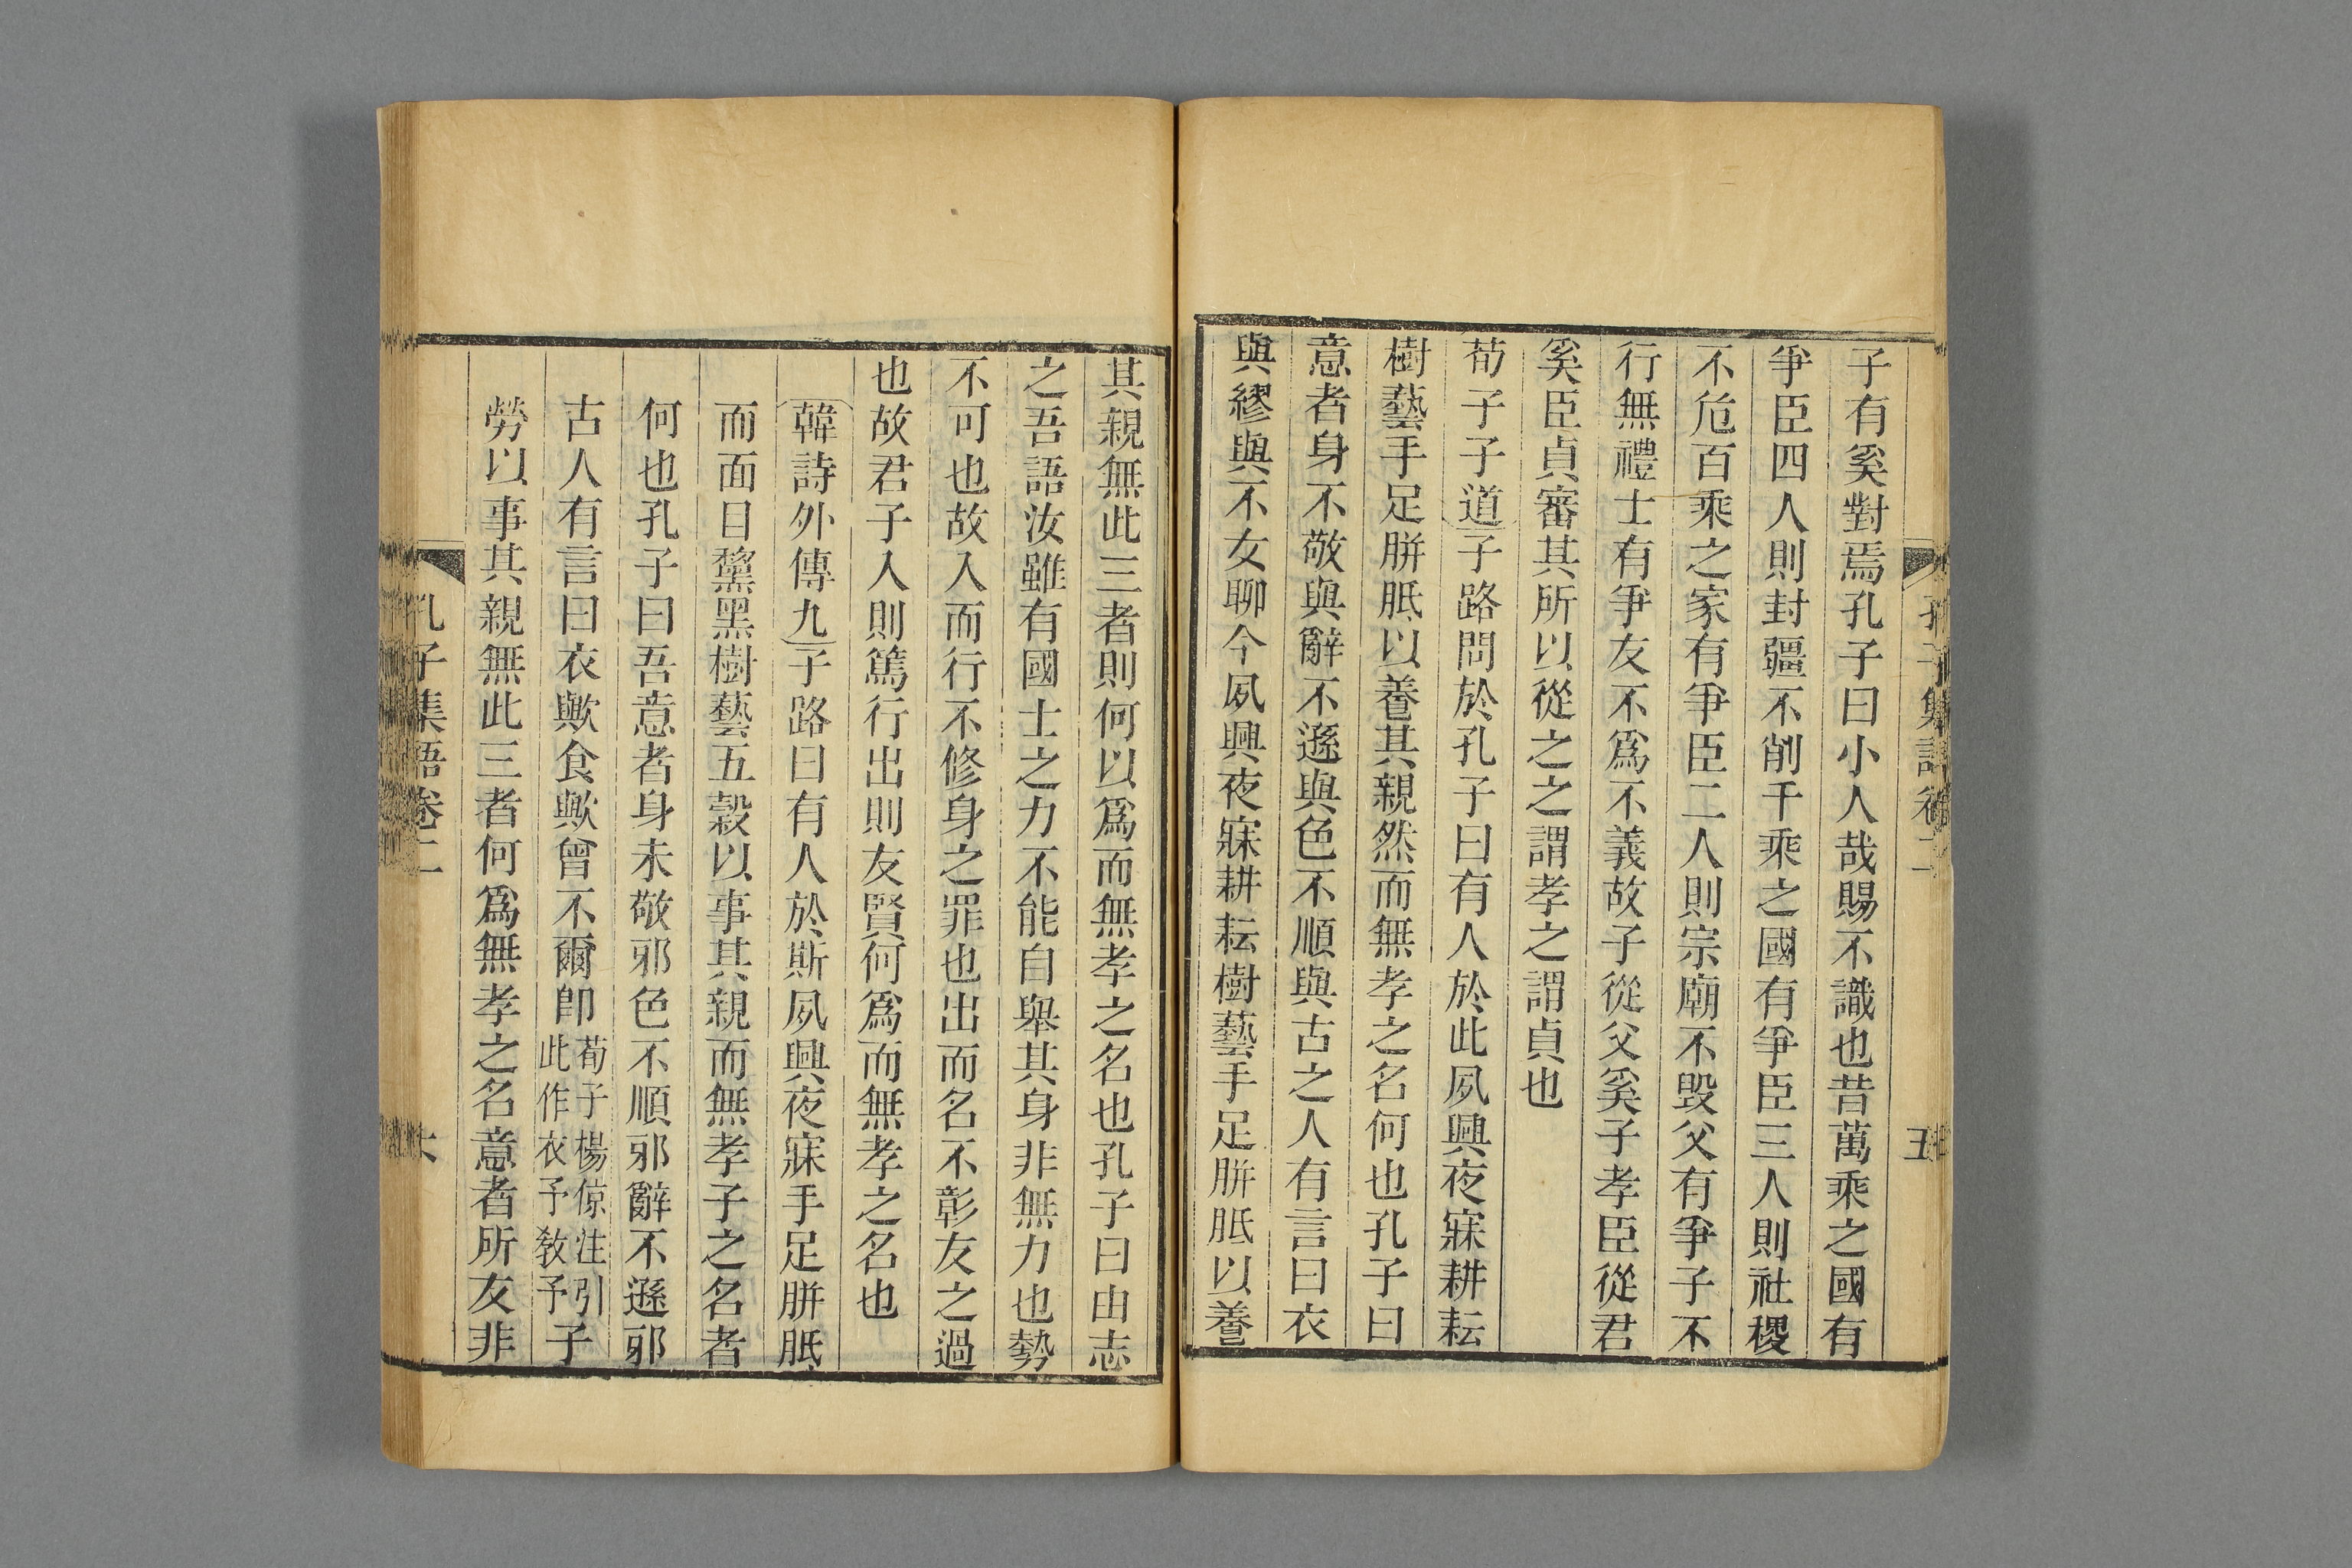 子有奚對焉孔子曰小人哉賜不識也昔萬乘之國有
爭臣四人則封疆不削千乘之國有爭臣三人則社稷
不危百乘之家有爭臣二人則宗廟不毀父有爭子不
行無禮士有爭友不爲不義故子從父奚子孝臣從君
奚臣貞審其所以從之之謂孝之謂貞也
荀子子道子路問於孔子曰有人於此夙興夜寐耕耘
樹藝手足胼胝以養其親然而無孝之名何也孔子曰
意者身不敬與辭不遜與色不順與古之人有言曰衣
與繆與不女聊今夙興夜寐耕耘樹藝手足胼胝以養
其親無此三者則何以爲而無孝之名也孔子曰由志
之吾語汝雖有國士之力不能自舉其身非無力也勢
不可也故入而行不修身之罪也出而名不彰友之過
也故君子入則篤行出則友賢何爲而無孝之名也
韓詩外傳九子路曰有人於斯夙興夜寐手足胼胝
而面目黧黑樹藝五穀以事其親而無孝子之名者
何也孔子曰吾意者身未敬邪色不順邪辭不遜邪
古人有言曰衣歟食歟曾不爾卽荀子楊倞注引此作衣予敎予子
勞以事其親無此三者何爲無孝之名意者所友非
孔子集語卷二